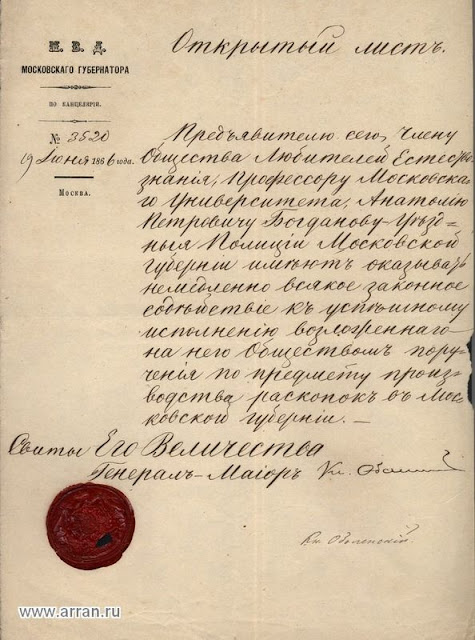 М. В. Д.
МОСКОВСКАГО ГУБЕРНАТОРА
ПО КАНЦЕЛЯРІИ.
№ 3520
19 Іюня 1866 года.
Москва.
Открытый листъ.
Предъявителю сего, Члену
Общества Любителей Естество-
знанія, Профессору Московска-
го Университета, Анатолію
Петровичу Богданову Уѣзд-
ныя Полиціи Московской
губерніи имѣютъ оказывать
немедленно всякое законное
содѣйствіе къ успѣшному
исполненію возложеннаго
на него Обществомъ пору-
ченія по предмету произ-
водства раскопокъ въ Мос-
ковской губерніи. —
Свиты Его Величества
Генералъ-Маіоръ Кн. Оболенскій
Кн. Оболенскій.
www.arran.ru